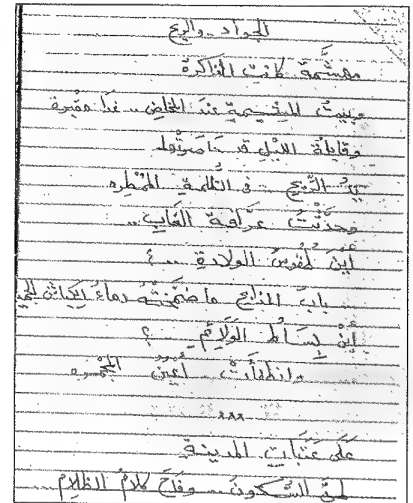 الجواد.. والريح
مهشَّمة كانت الذاكرة
وبيت المشيمة عند المخاض.. غدا مقبرة
وقابلة الليل قد
يدُ الرّيح في الظلمة الممطره
وحدّثتُ عرّافة الغاب..
أين طقوسُ الولادة .. ؟
باب المذابح ما ضمّخته دماءُ الكباش
أين بساط الولائم .. ؟
وانطفأت أعين المجمره
***
على عتبات المدينة
السكون.. وفاح كلامُ الظلام